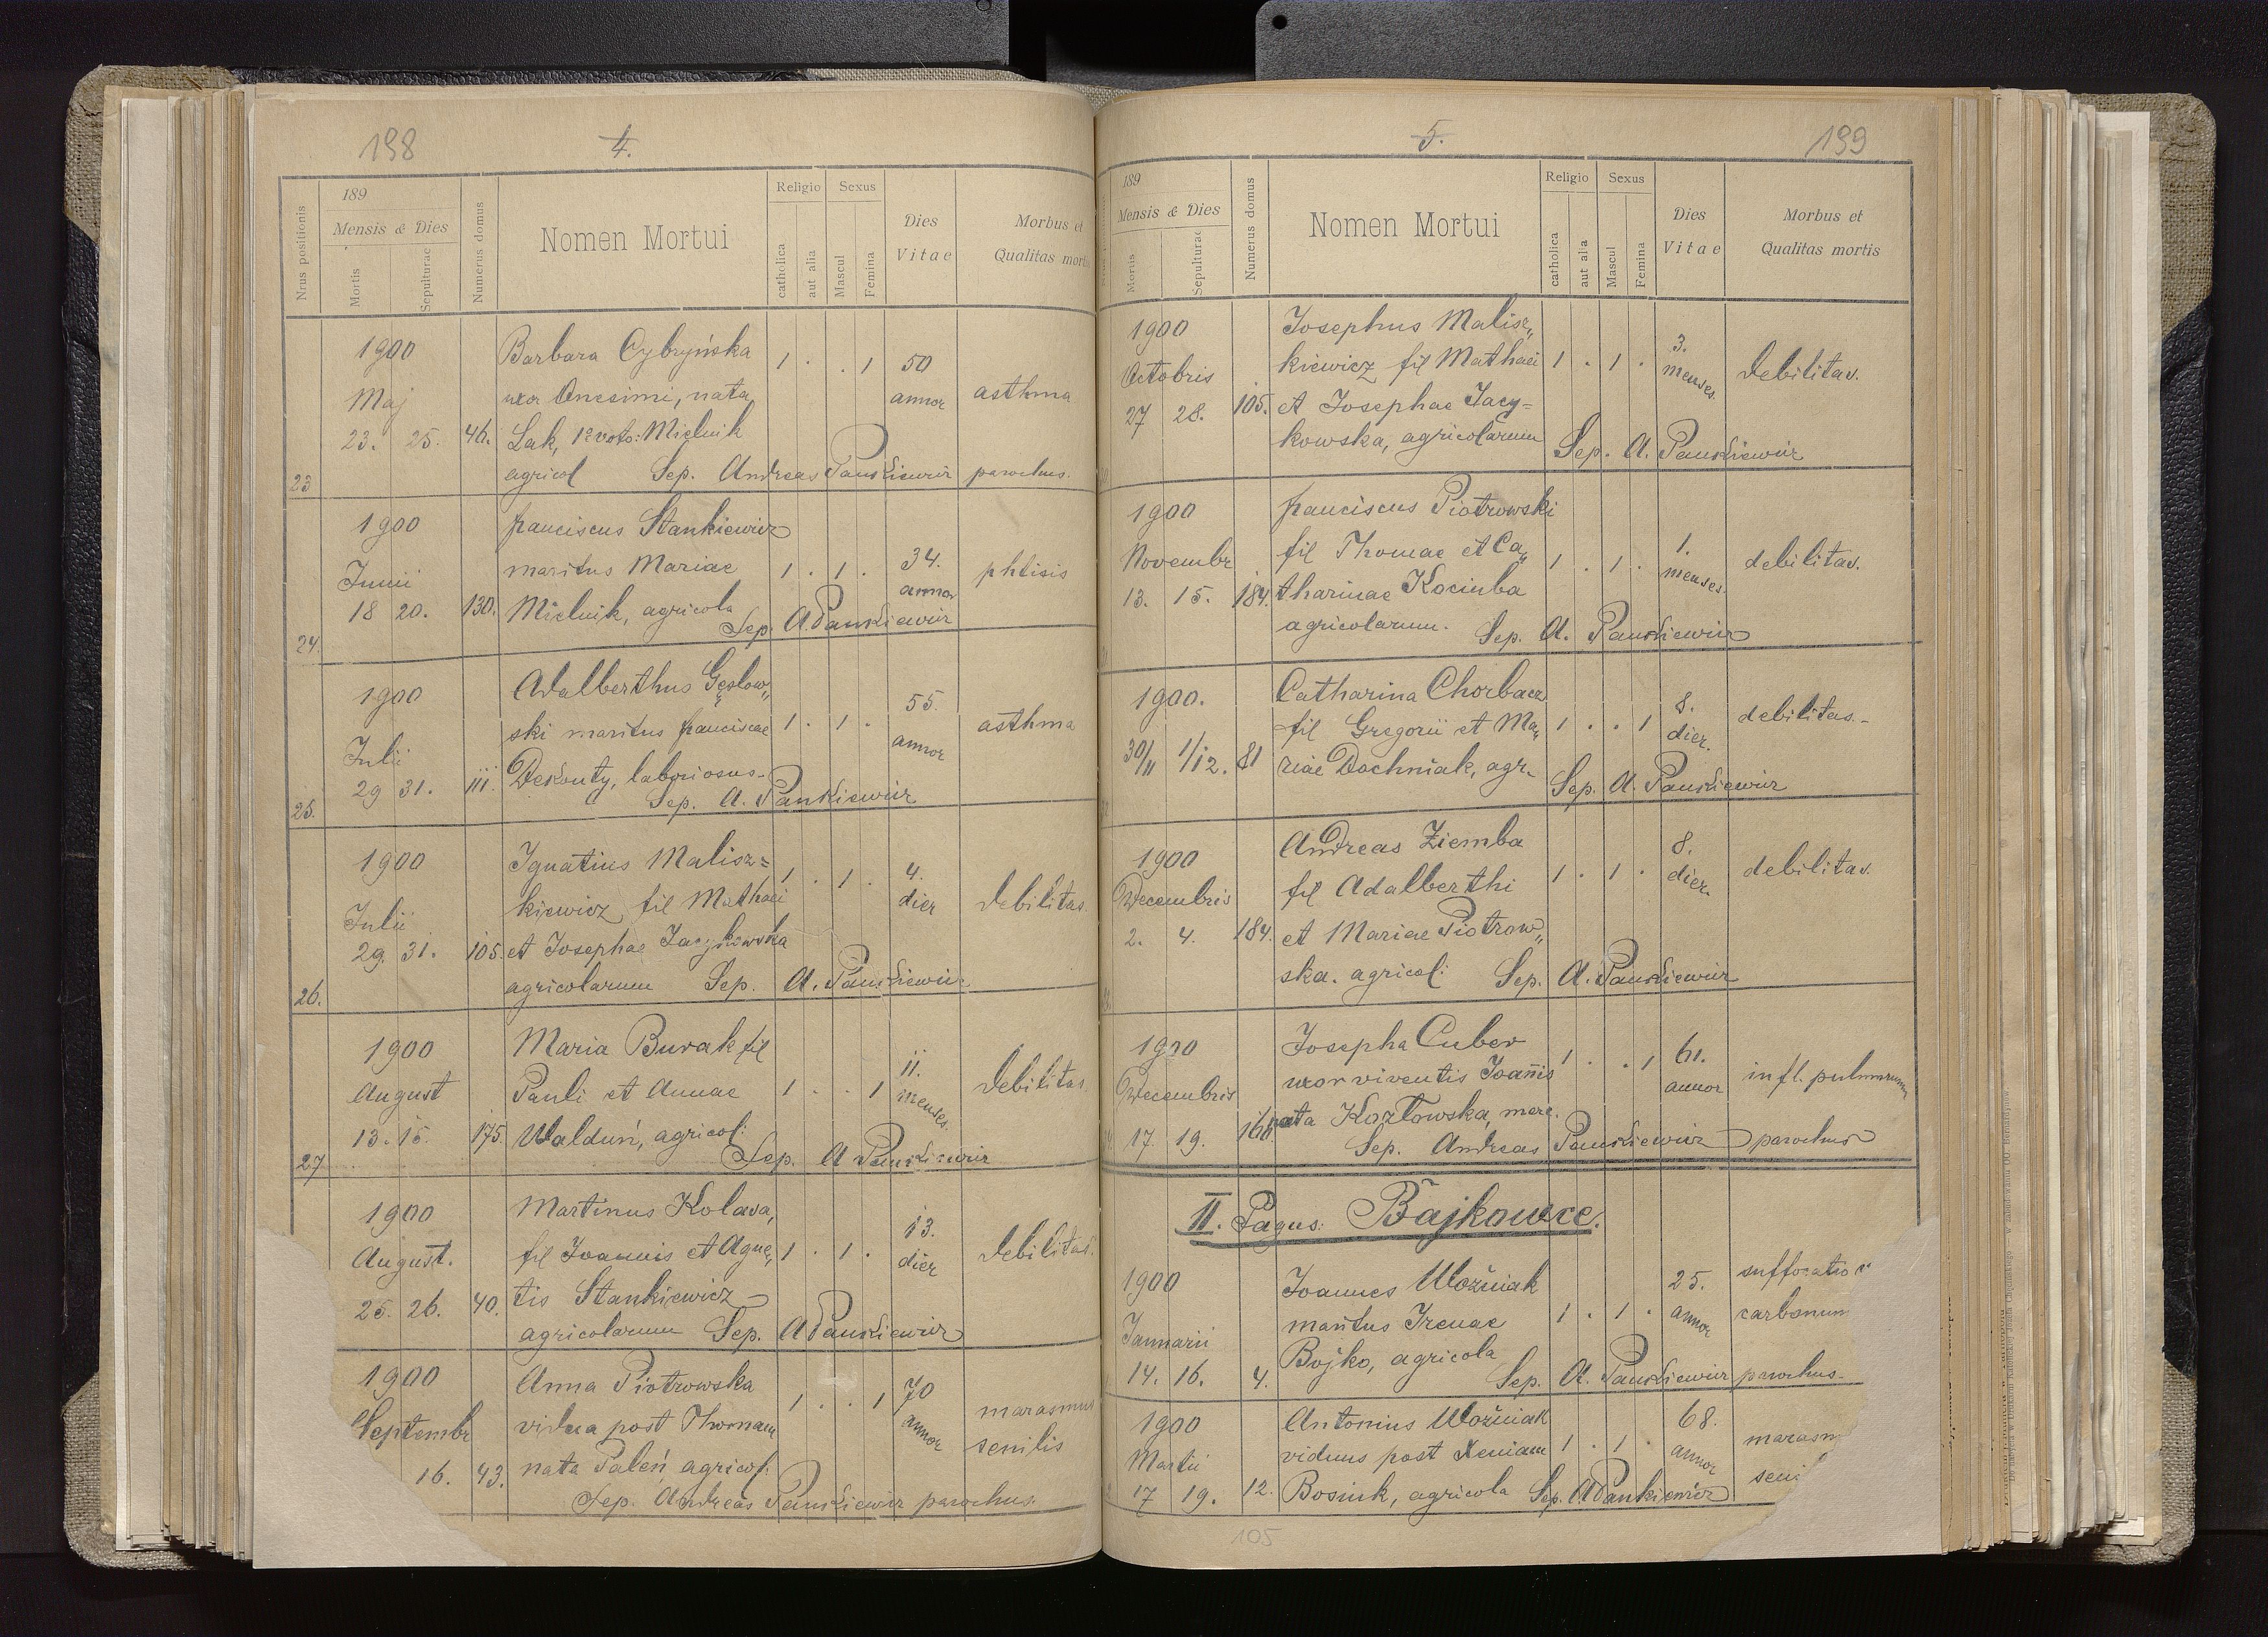 198
4.
Nrus positionis
189
Mensis & Dies
Mortis
Sepulturae
Numerus domus
Nomen Mortui
Religio
catholica
aut alia
Sexus
Mascul
Femina
Dies
Vitae
Morbus et
Qualitas
1900
Barbara Cybryńska
uxor Onesimi, nata
Lak, 1º voto: Mielnik
agricol Sep. Andreas Pankiewicz parochus.
Maj
23. 25. 46.
1 . . 1
50
annor
asthma
23
1900
Franciscus Stankiewicz
maritus Mariae
Mielnik, agricola
Sep. A. Pankiewicz
Junii
18 20. 130.
1 . 1 .
34.
annor
phtisis
24.
1900
Adalberthus Gęslow„
ski maritus Franciscae
Dekouty, laboriosus.
Sep. A. Pankiewicz
Julii
29 31. 111.
1 . 1 .
55.
annor
asthma
25.
1900
Ignatius Malisz=
kiewicz fil Mathaei
et Josephae Jacykowska
agricolarum Sep. A. Pankiewicz
Julii
29. 31. 105.
1 . 1 .
4.
dier
debilitas
26.
1900
Maria Burak fil
Pauli et Annae
Walduń, agricol:
Sep. A Pankiewicz
August
13. 15. 175.
1 . . 1
11.
menses.
debilitas
27
1900
Martinus Kolasa,
fil Joannis et Agne„
tis Stankiewicz
agricolarum Sep. A Pankiewicz
August.
25. 26. 40.
1 . 1 .
13.
dier
debilitas.
1900
Anna Piotrowska
vidua post Thomam
nata Paleń, agricol:
Sep. Andreas Pankiewicz parochus.
Septembr
16. 43.
1 . . 1
70
annor
marasmus
senilis
5.
199
189
Mensis & Dies
Mortis
Sepulturae
Numerus domus
Nomen Mortui
Religio
catholica
aut alia
Sexus
Mascul
Femina
Dies
Vitae
Morbus et
Qualitas mortis
1900
Josephus Malisz„
kiewicz fil Mathaei
et Josephae Jacy=
kowska, agricolarum
Sep. A. Pankiewicz
Octobris
27 28. 105.
1 . 1 .
3.
menses.
debilitas.
1900
Franciscus Piotrowski
fil Thomae et Ca„
tharinae Kociuba
agricolarum. Sep. A. Pankiewicz
Novembr
13. 15. 184.
1 . 1 .
1.
menses.
debilitas.
1900.
Catharina Chorbacz
fil Gregorii et Ma„
riae Dochniak, agr.
Sep. A. Pankiewicz
30/11 1/12. 81
1 . . 1
8.
dier.
debilitas.
1900
Andreas Ziemba
fil Adalberthi
et Mariae Piotrow„
ska. agricol: Sep. A. Pankiewicz
Decembris
2. 4. 184.
1 . 1 .
8.
dier.
debilitas.
1900
Josepha Cuber
uxor viventis Joañis
nata Kozłowska, merc.
Sep. Andreas Pankiewicz parochus
Decembris
17. 19.
1 . . 1
61.
annor
infl. pulmonum
II. Pagus: Bajkowce.
1900
Joannes Woźniak
maritus Irenae
Bojko, agricola
Sep. A. Pankiewicz parochus.
Januarii
14. 16. 4.
1 . 1 .
25.
annor
suffocatio
carbonum
1900
Antonius Woźniak
viduus post Xeniam
Bosiuk, agricola Sep. A Pankiewicz
Martii
17 19. 12.
1 . 1 .
68.
annor
105